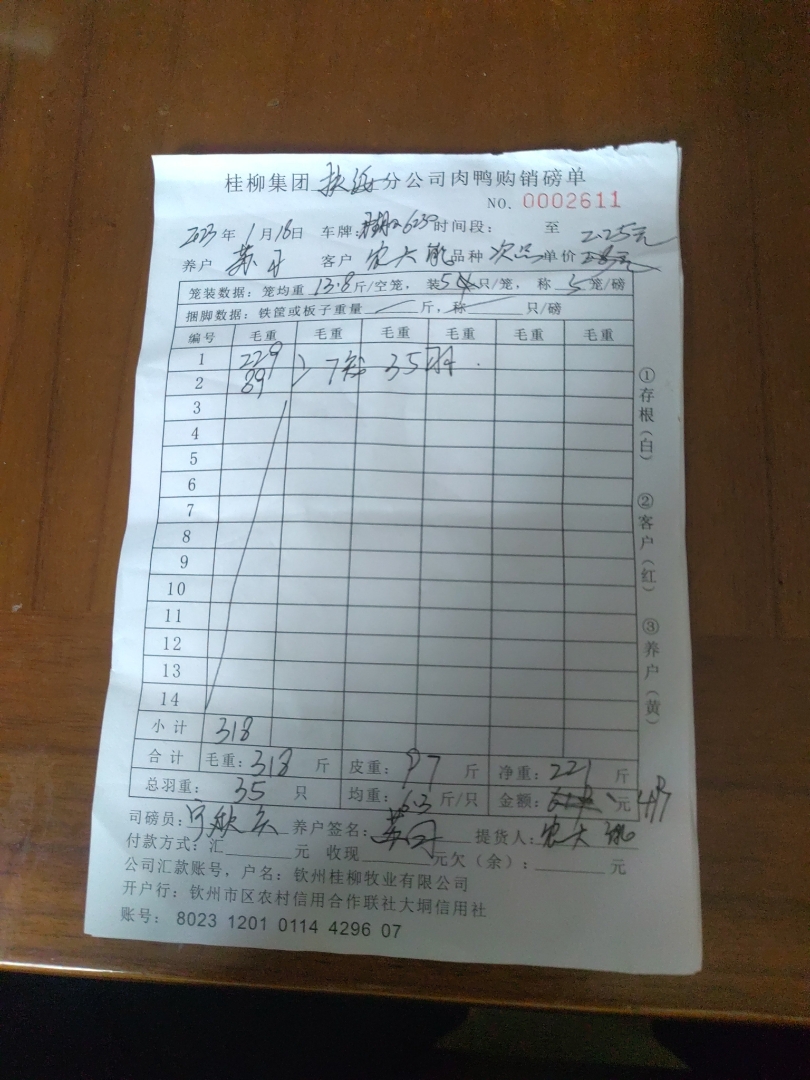 桂柳集团 分公司肉鸭购销磅单
NO. 0002611
2023年1月18日 车牌: 6230 时间段: 至 2.25元
养户 苏 客户 农大 品种 次品 单价
笼装数据: 笼均重 13.8 斤/空笼, 装 5 只/笼, 称 5 笼/磅
捆脚数据: 铁筐或板子重量 斤, 称 只/磅
编号 毛重 毛重 毛重 毛重 毛重 毛重
1 229
2 89 7笼 35羽
3
4
5
6
7
8
9
10
11
12
13
14
小计 318
合计 毛重: 318 斤 皮重: 97 斤 净重: 221 斤
总羽重: 35 只 均重: 6.3 斤/只 金额: 元 497
司磅员: 养户签名: 苏 提货人: 农大
付款方式: 汇 元 收现 元欠(余): 元
公司汇款账号, 户名: 钦州桂柳牧业有限公司
开户行: 钦州市区农村信用合作联社大垌信用社
账号: 8023 1201 0114 4296 07
①存根(白) ②客户(红) ③养户(黄)